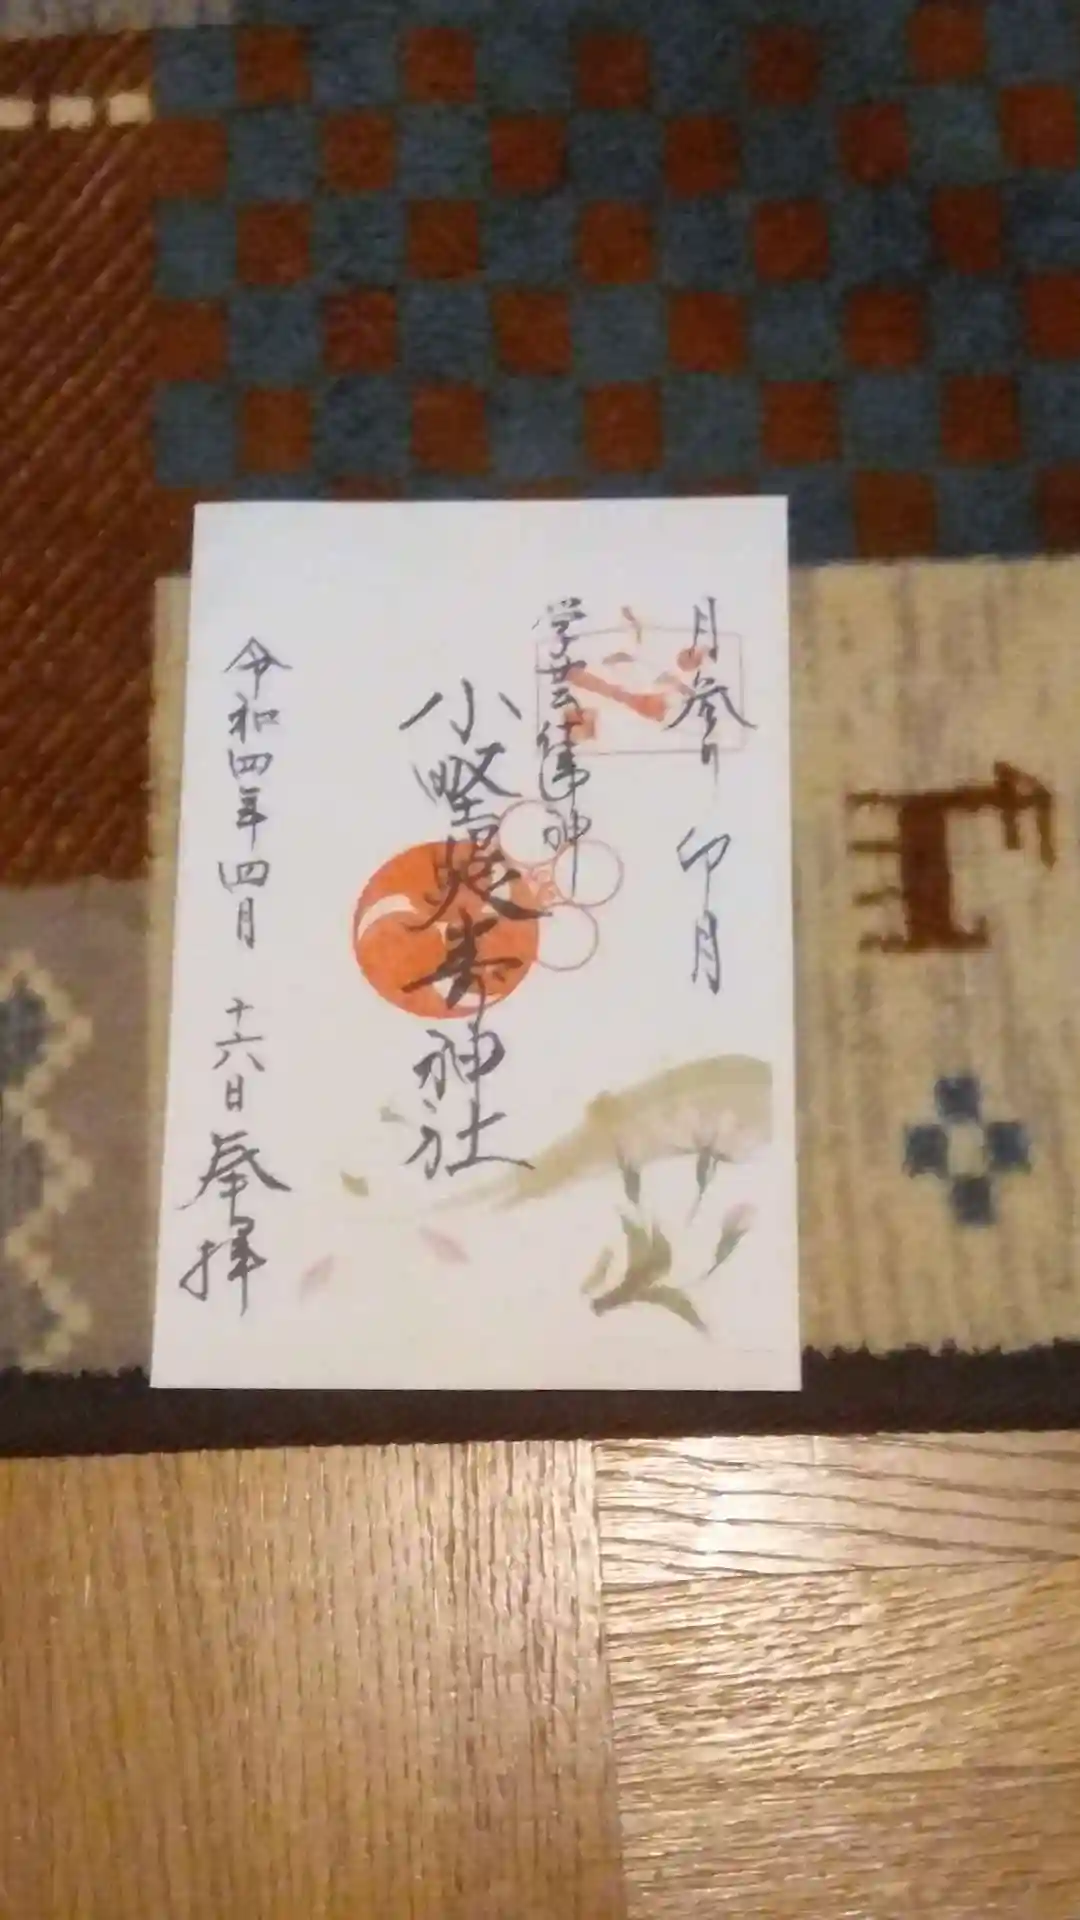 月参り 卯月
学芸偉神
小野照崎神社
令和四年四月十六日
奉拝